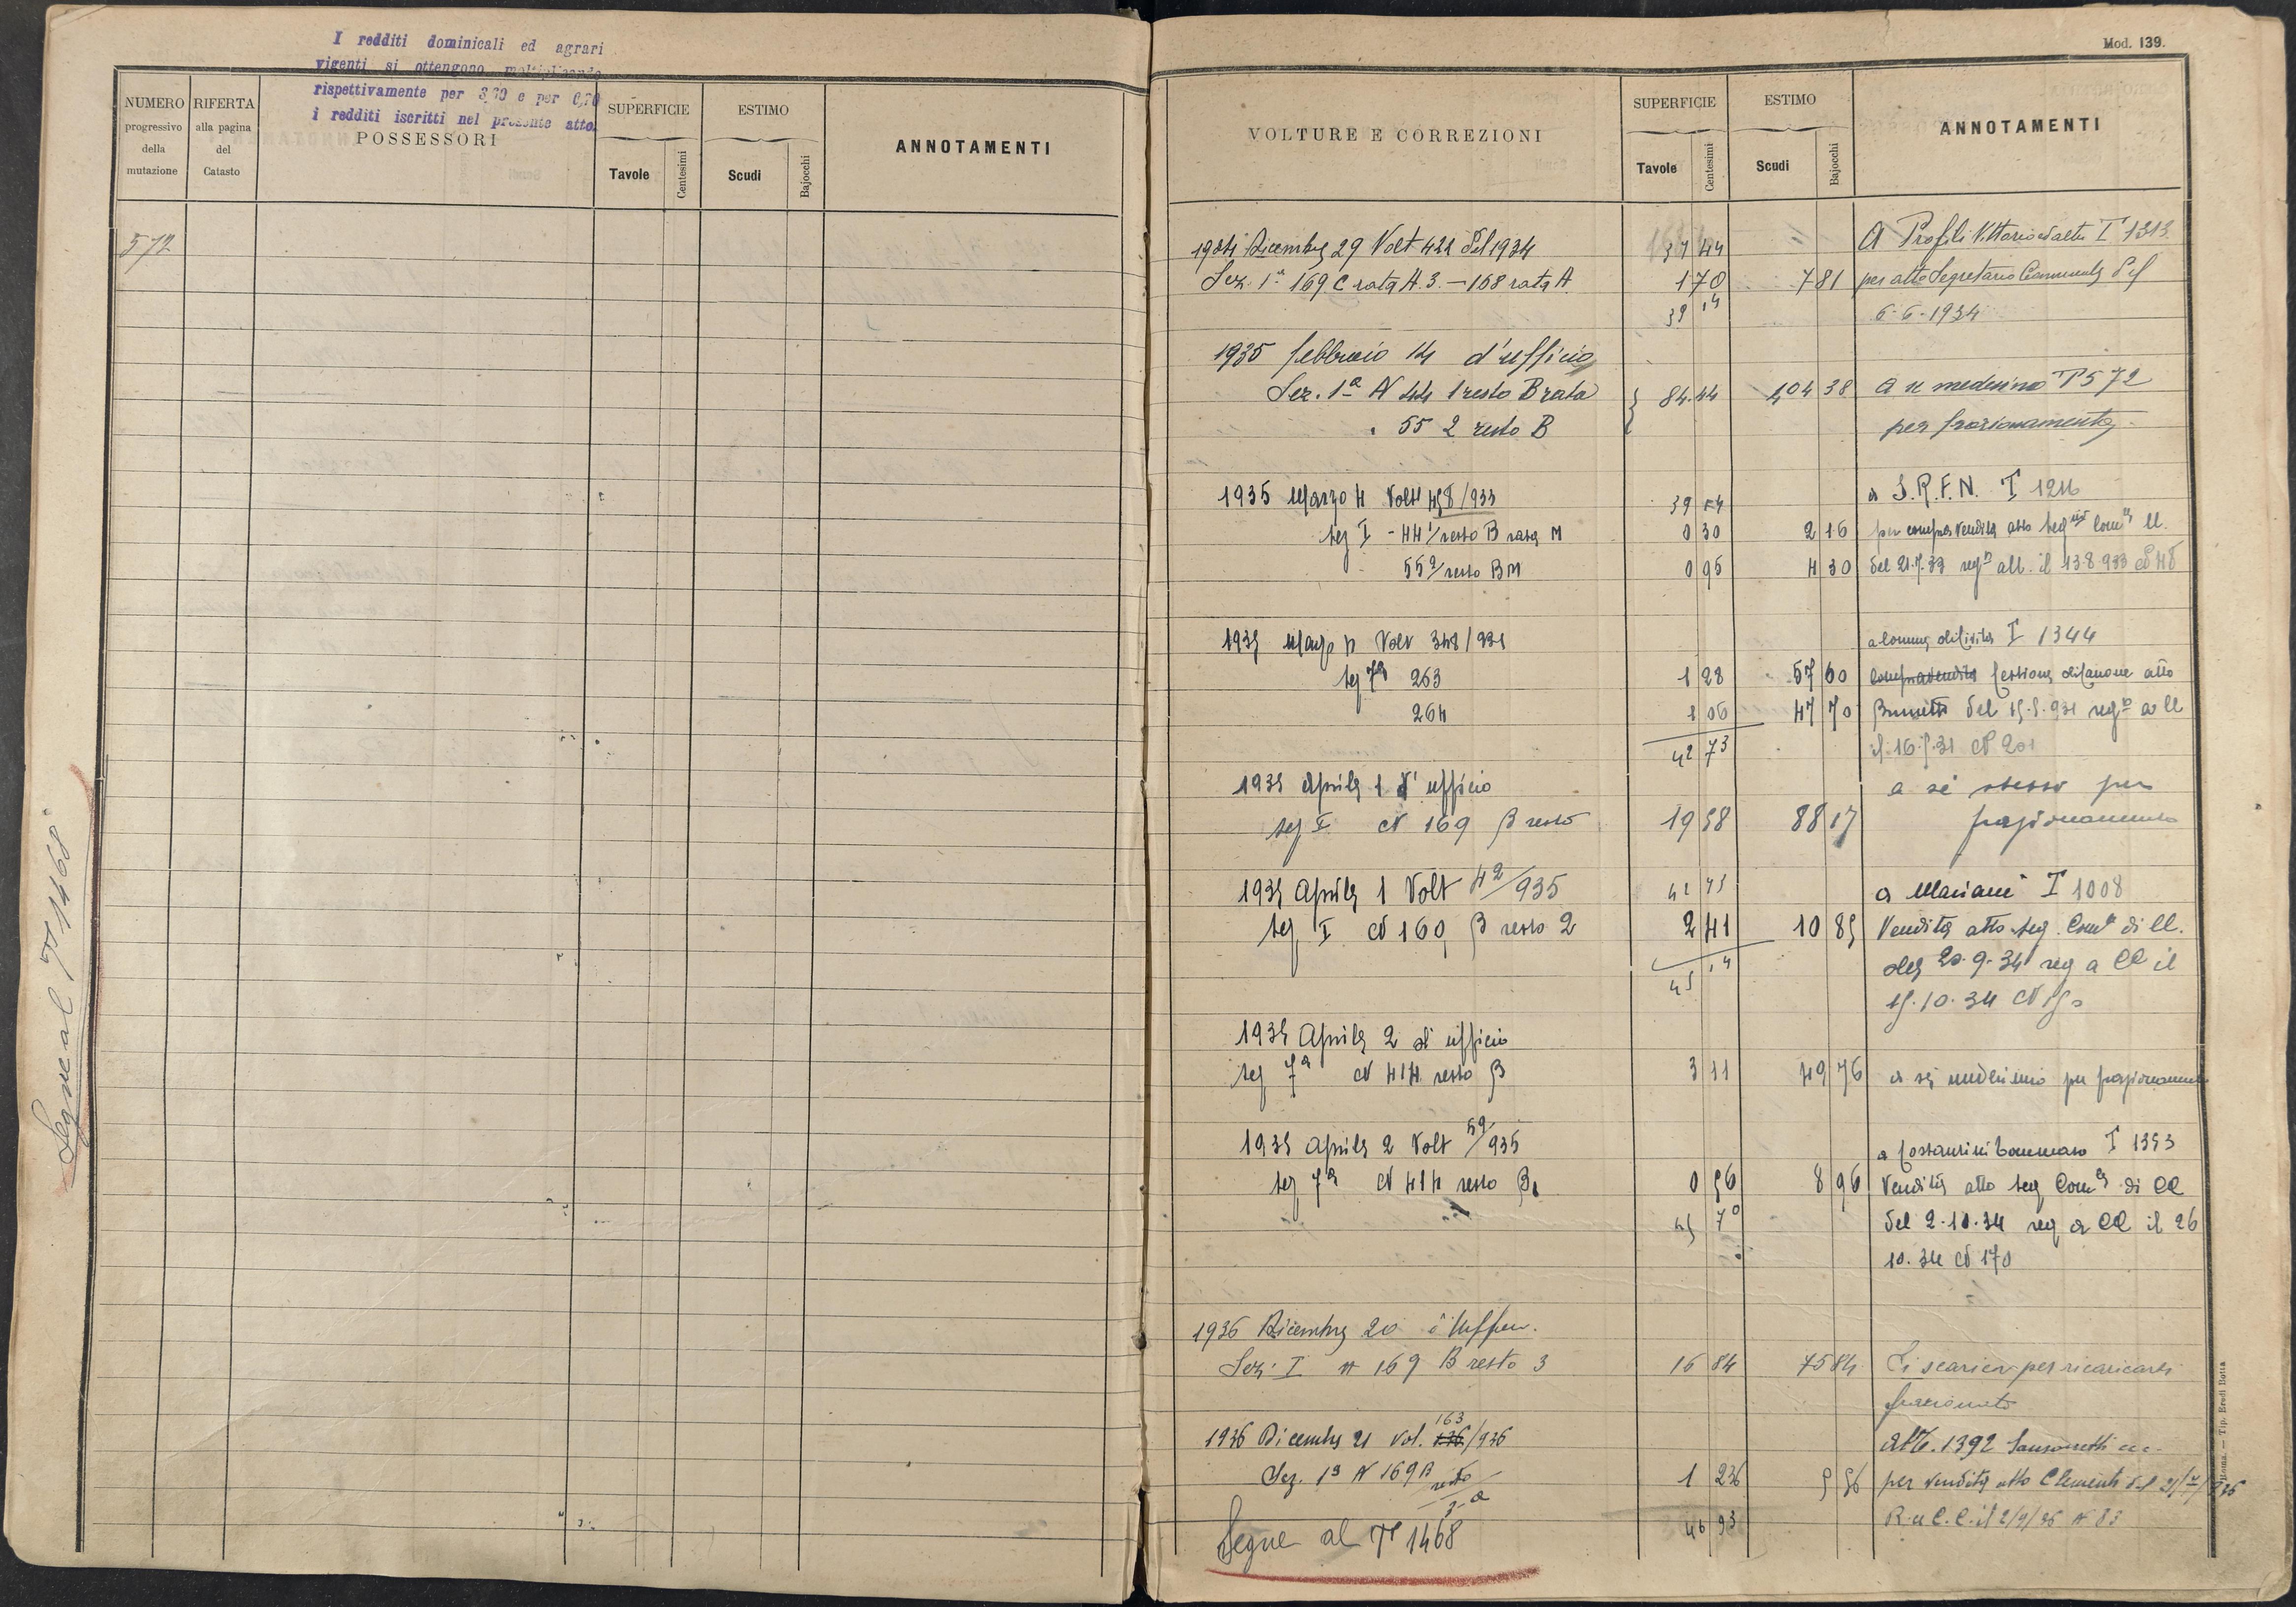 I redditi dominicali ed agrari
vigenti si ottengono moltiplicando
rispettivamente per 3,70 e per 6,70
i redditi iscritti nel presente atto.
NUMERO progressivo della mutazione
RIFERTA alla pagina del Catasto
POSSESSORI
SUPERFICIE
Tavole Centesimi
ESTIMO
Scudi Bajocchi
ANNOTAMENTI
572
Segue al T° 1468
Mod. 139.
VOLTURE E CORREZIONI
SUPERFICIE
Tavole Centesimi
ESTIMO
Scudi Bajocchi
ANNOTAMENTI
1934 Dicembre 29 Volt 422 del 1934 37 44 A Profili Vittorio ed altri T 1313
Sez. 1ª 169 C rata A. 3. – 168 rata A 1 70 7 81 per atto Segretario Comunale del
39 14 6-6-1934
1935 febbraio 14 d'ufficio
Sez. 1ª N 44 1 resto B rata 84.44 404 38 A se medesimo T° 572
55 2 resto B per frazionamento
1935 Marzo 4 Volt 458/933 39 14 a S.R.F.N. T 1216
sez I - 44 1/resto B rata M 0 30 2 16 per compravendita atto
55 2/resto B M 0 95 4 30 del 21.7.33 all. il 13.8.933
1935 Marzo Volt 348/931 T 1344
sez 7ª 263 1 28 57 60 compravendita atto
264 1 06 47 70 del
42 73 il 16.5.31 N 201
1935 Aprile 1 d'ufficio a sé stesso per
sez I N 169 B resto 19 58 88 17 frazionamento
1935 Aprile 1 Volt 42/935 42 73 a Mariani T 1008
sez I N 169 B resto 2 2 41 10 85 Vendita atto seg. Comle di CC.
45 14 del 20.9.34 reg a CC il
15.10.34 N
1935 Aprile 2 d'ufficio
sez 7ª N 414 resto B 3 11 49 76 a sé medesimo per frazionamento
1935 Aprile 2 Volt 59/935 a Costantini Tommaso T 1353
sez 7ª N 414 resto B1 0 56 8 96 Vendita atto seg Comle di CC
45 70 del 2.10.34 reg a CC il 26
10.34 N 170
1936 Dicembre 20 d'Ufficio
Sez. I n 169 B resto 3 16 84 75 84 Si scarica per ricaricarsi
frazionato
1936 Dicembre 21 Vol. 136 163/936 Al T°. 1392 Sansonetti
Sez. 1ª N 169 B resto 3-a 1 236 5 56 per vendita atto Clementi del
46 93 R. a C.C. il 2/9/36 N 83
Segue al T° 1468
Roma. — Tip. Eredi Botta